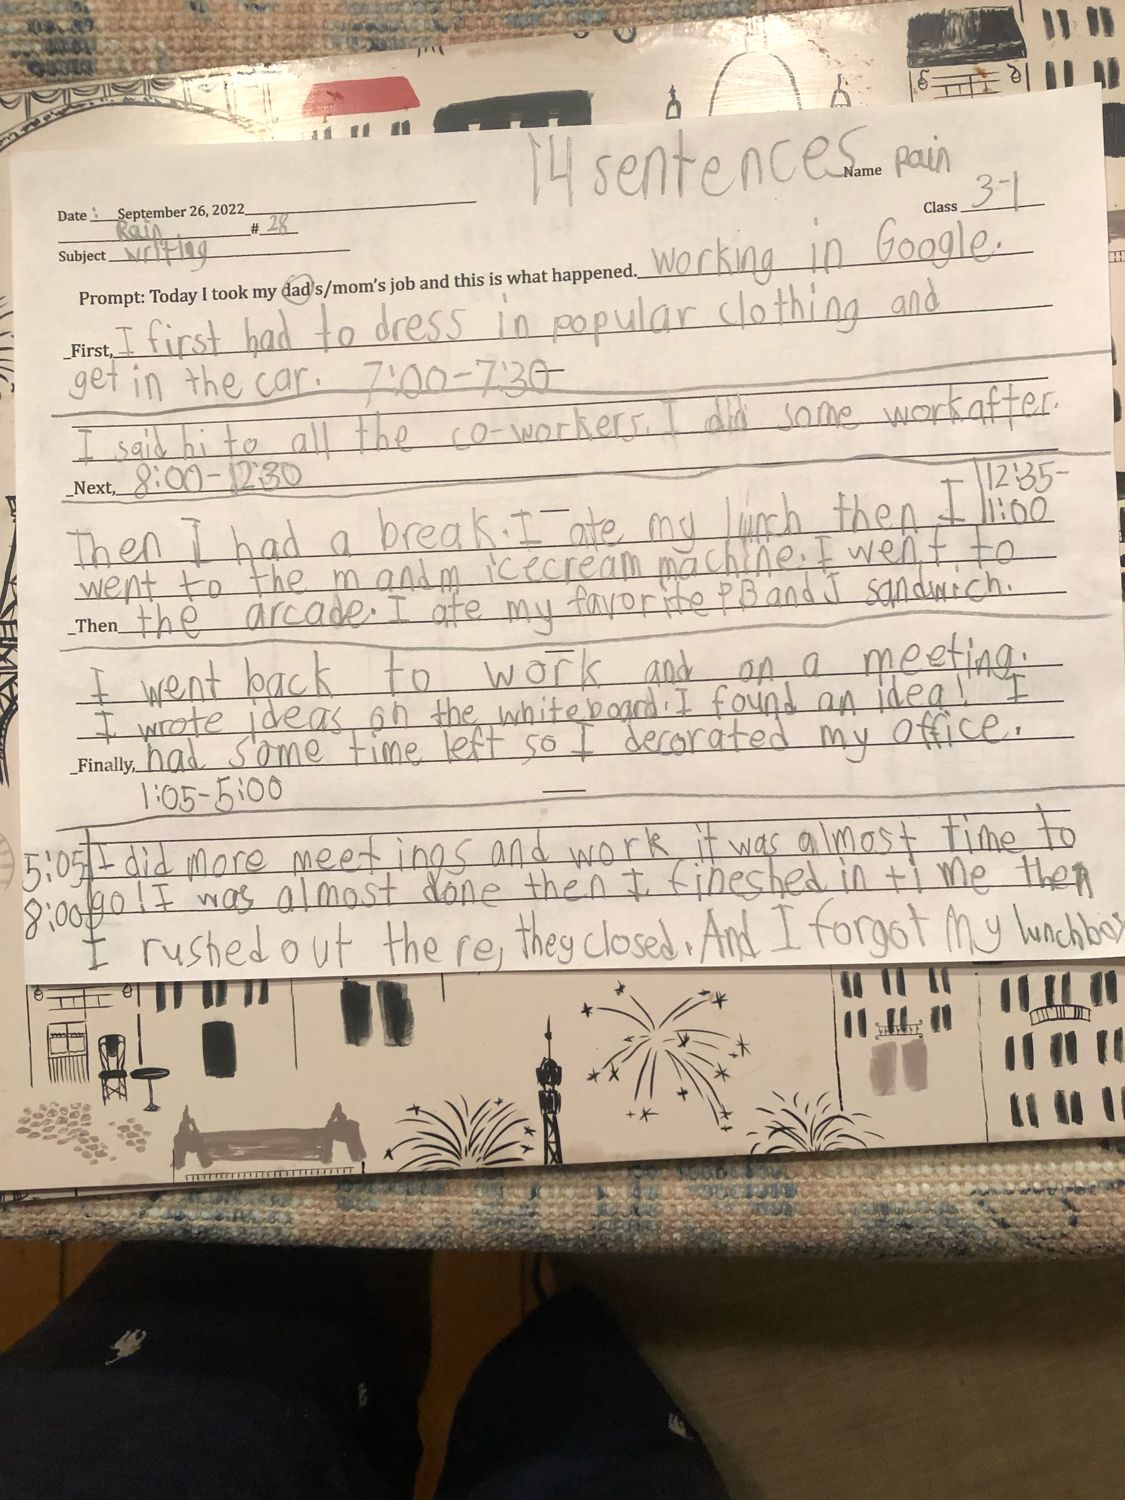 14 sentences Name Rain
Date: September 26, 2022
Class 3-1
Rain # 28
Subject writing
Prompt: Today I took my dad's/mom's job and this is what happened. working in Google.
First, I first had to dress in popular clothing and
get in the car. 7:00-7:30
I said hi to all the co-workers. I did some work after.
Next, 8:00-12:30
12:35-
1:00
Then I had a break. I ate my lunch then I
went to the m and m icecream machine. I went to
Then the arcade. I ate my favorite PB and J sandwich.
I went back to work and on a meeting.
I wrote ideas on the whiteboard. I found an idea! I
Finally, had some time left so I decorated my office.
1:05-5:00
5:05 I did more meetings and work it was almost time to
8:00 go! I was almost done then I fineshed in time then
I rushed out there, they closed. And I forgot my lunchbox